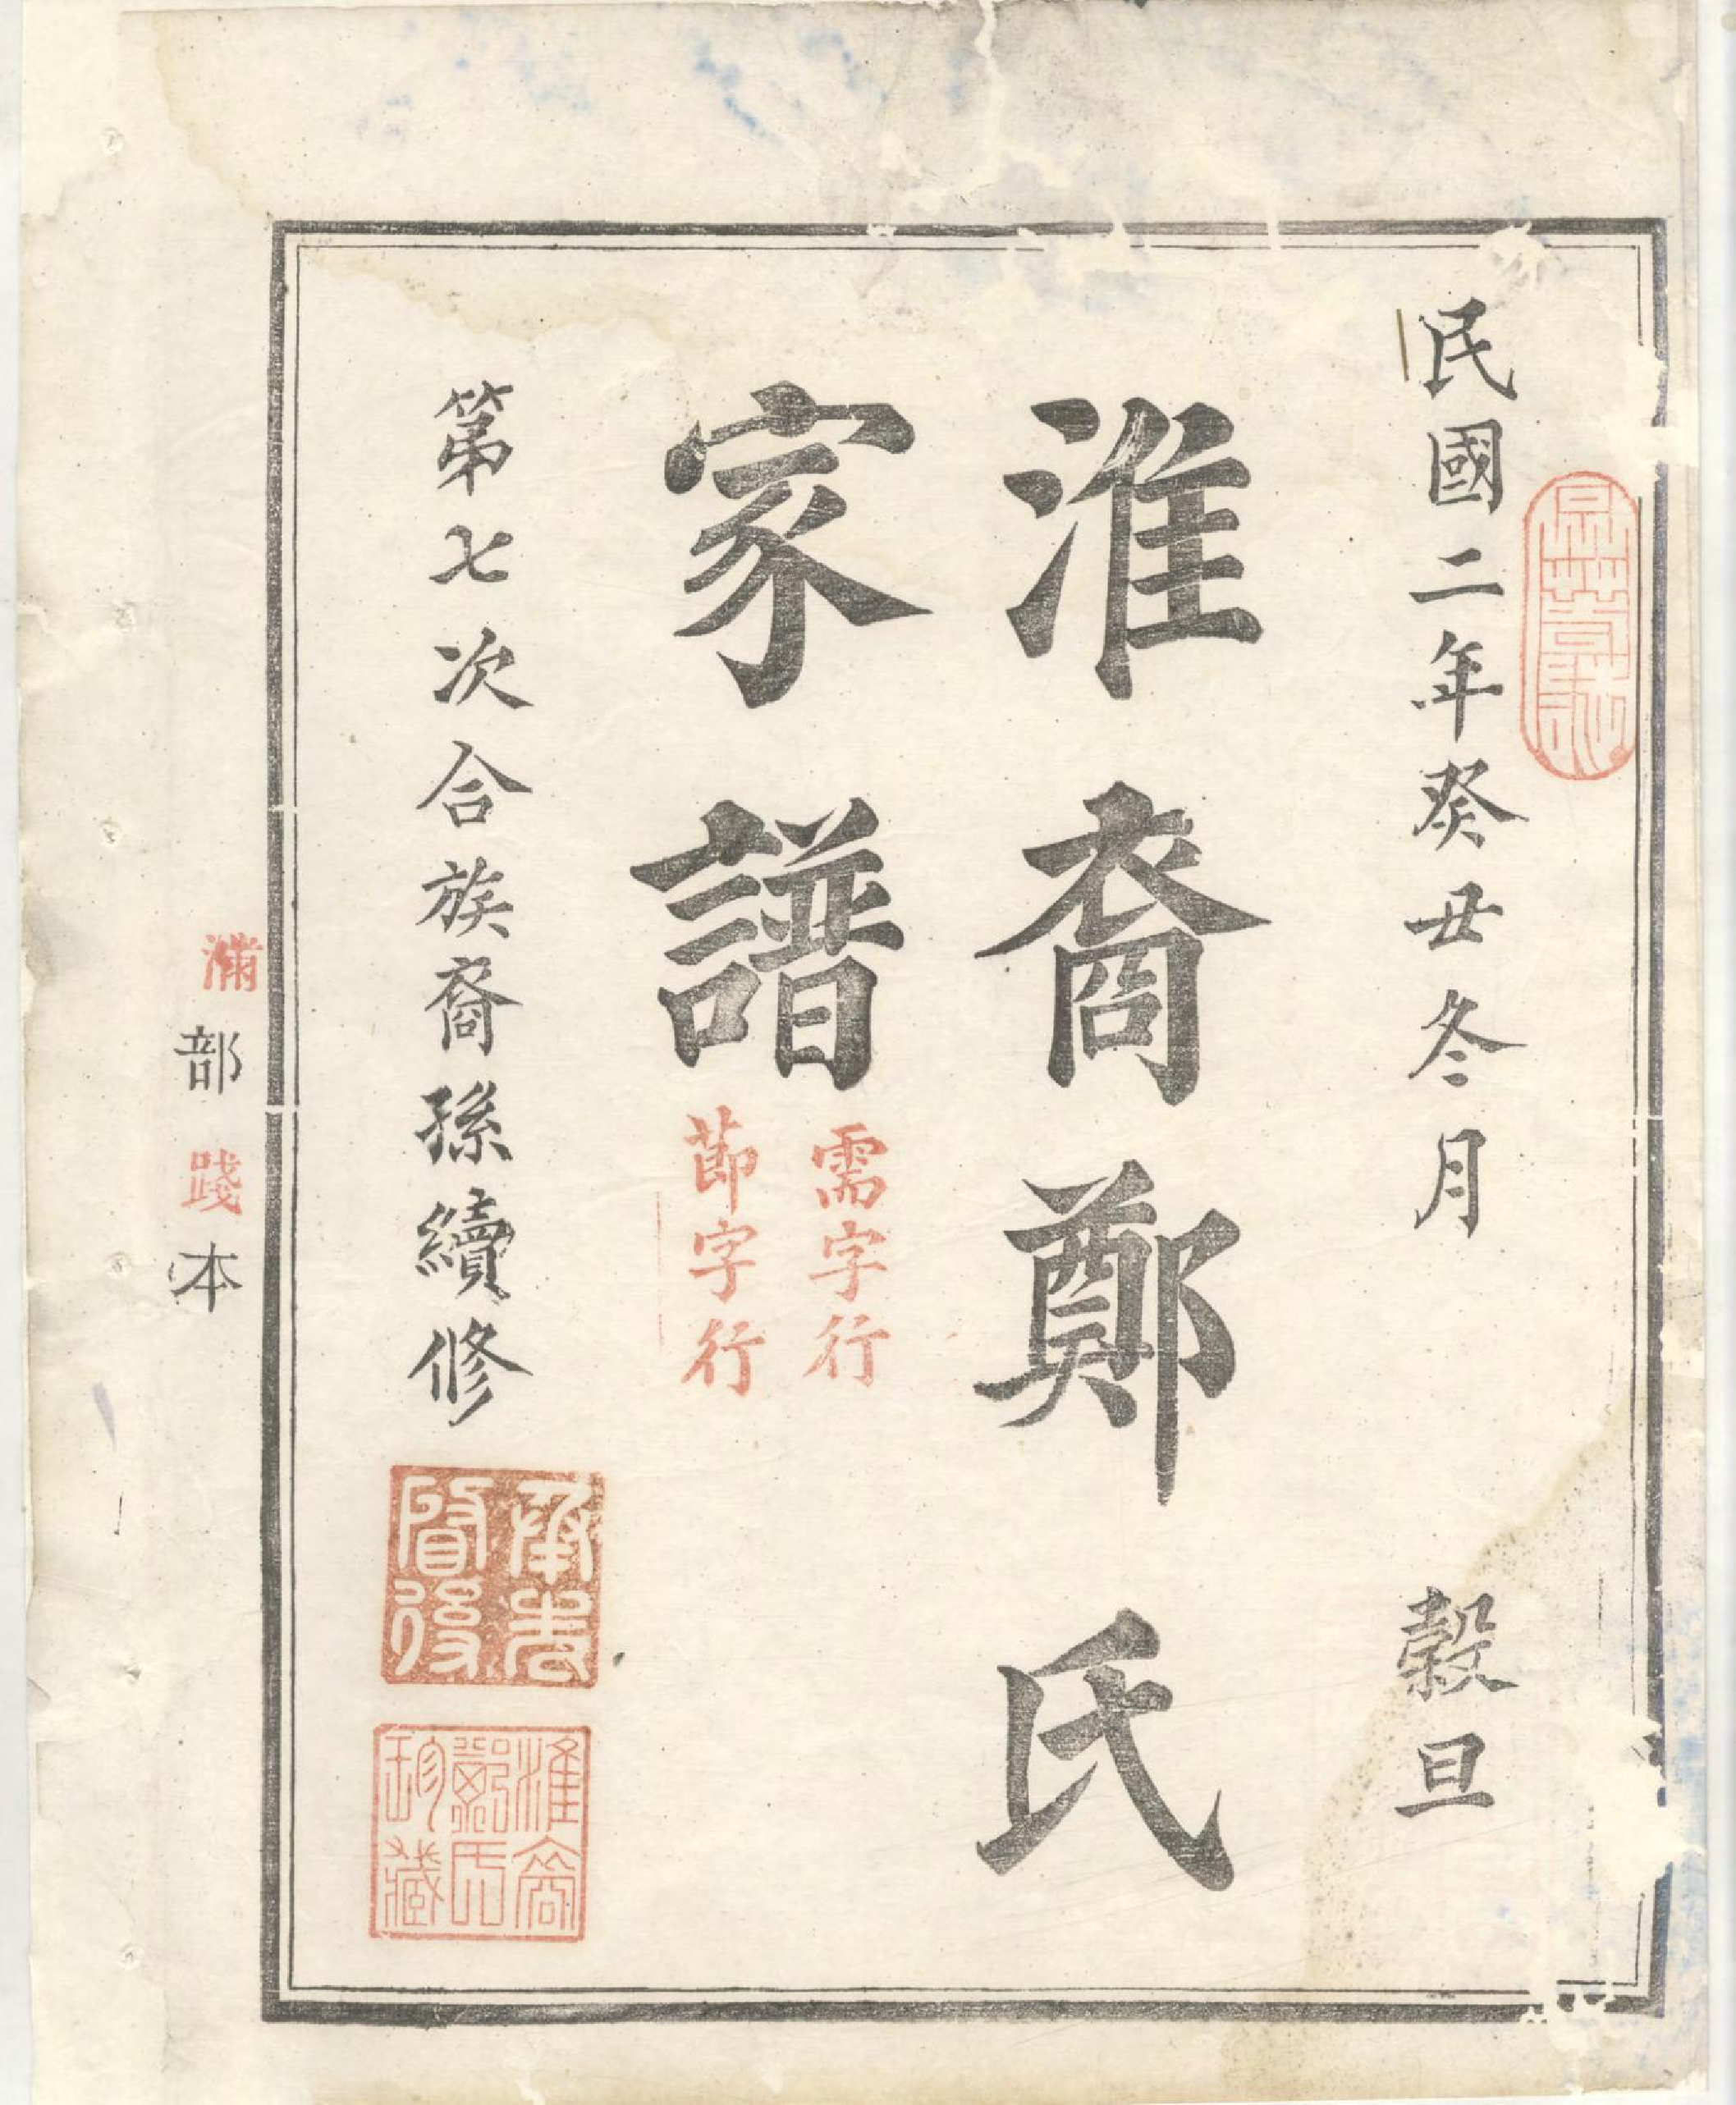 民國二年癸丑冬月 穀旦
淮裔鄭氏
家譜
需字行
節字行
第七次合族裔孫續修
承先啓後
淮裔鄭氏珍藏
滿部踐本